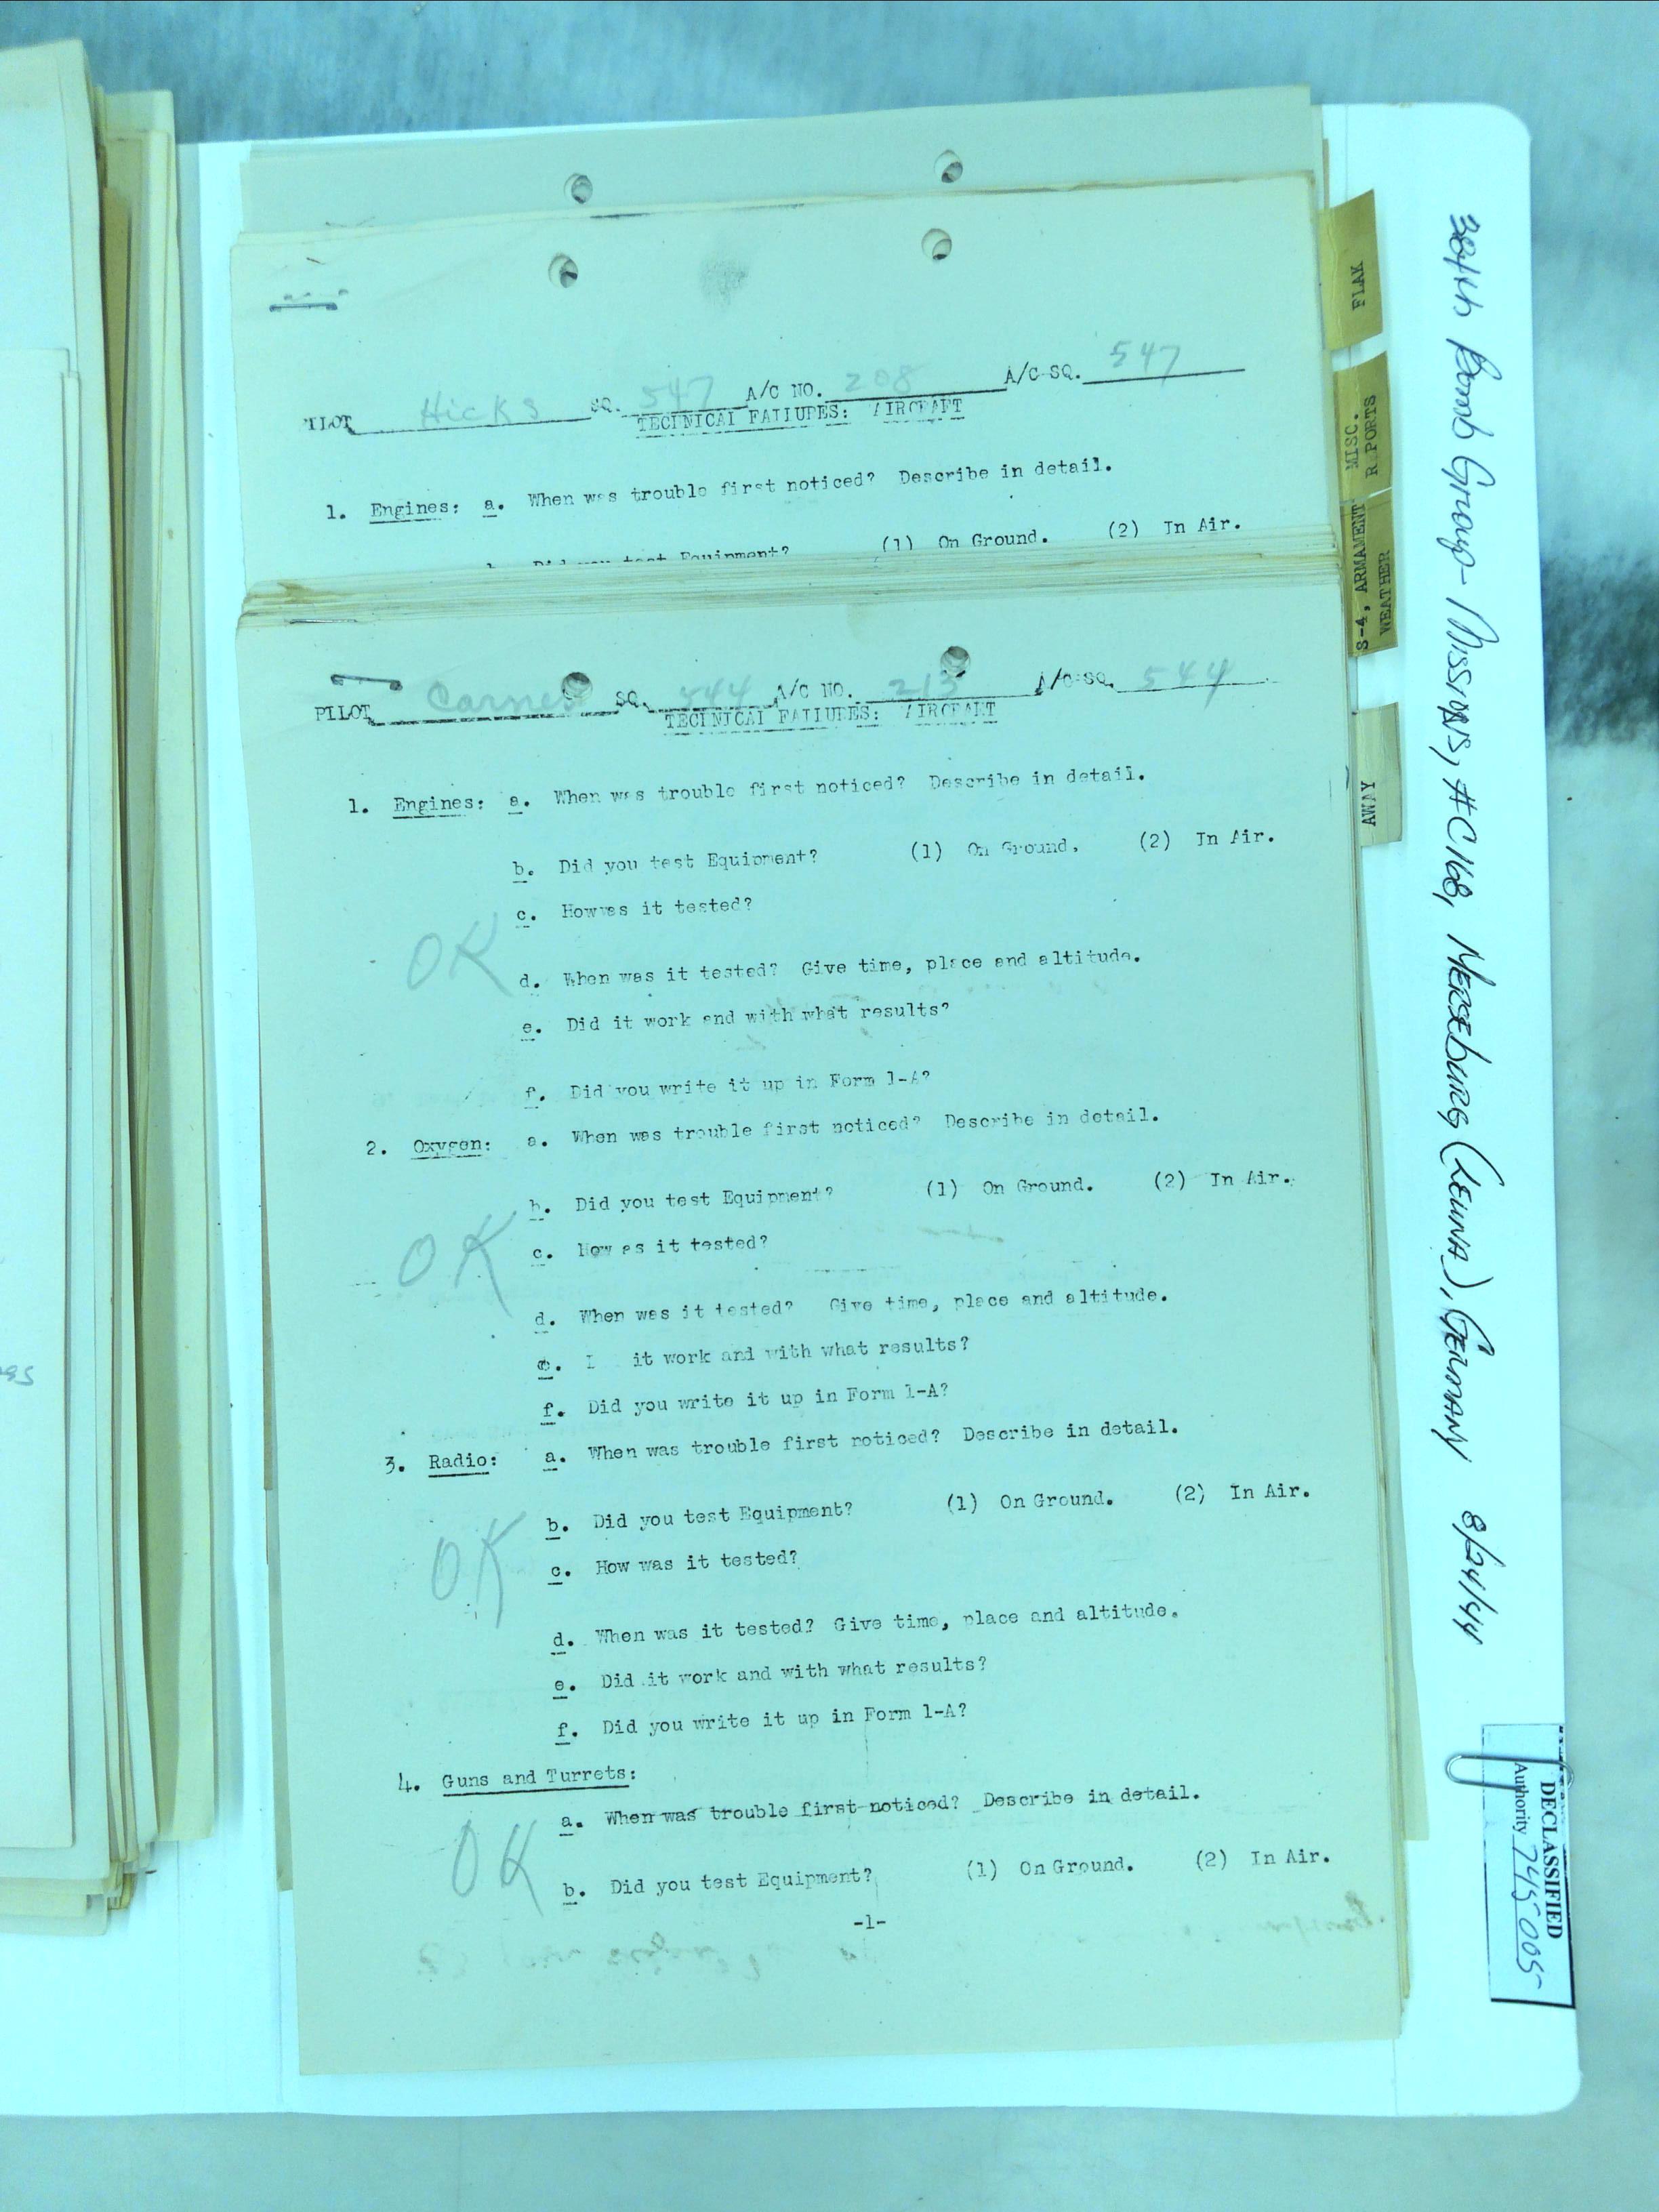 PILOT Hicks SQ. 547 A/C NO. 208 A/C SQ. 547
TECHNICAL FAILURES: AIRCRAFT
1. Engines: a. When was trouble first noticed? Describe in detail.
Did you test Equipment? (1) On Ground. (2) In Air.
PILOT SQ. 544 A/C NO. 213 A/C SQ. 544
TECHNICAL FAILURES: AIRCRAFT
1. Engines: a. When was trouble first noticed? Describe in detail.
b. Did you test Equipment? (1) On Ground. (2) In Air.
c. How was it tested?
OK
d. When was it tested? Give time, place and altitude.
e. Did it work and with what results?
f. Did you write it up in Form 1-A?
2. Oxygen: a. When was trouble first noticed? Describe in detail.
b. Did you test Equipment? (1) On Ground. (2) In Air.
c. How as it tested?
OK
d. When was it tested? Give time, place and altitude.
e. it work and with what results?
f. Did you write it up in Form 1-A?
3. Radio: a. When was trouble first noticed? Describe in detail.
b. Did you test Equipment? (1) On Ground. (2) In Air.
OK
c. How was it tested?
d. When was it tested? Give time, place and altitude.
e. Did it work and with what results?
f. Did you write it up in Form 1-A?
4. Guns and Turrets:
a. When was trouble first noticed? Describe in detail.
OK
b. Did you test Equipment? (1) On Ground. (2) In Air.
-1-
FLAK
MISC.
R PORTS
S-4, ARMAMENT
WEATHER
AWAY
384th Bomb Group - Missions, #C168, Merseburg (Leuna), Germany 8/24/44
DECLASSIFIED
Authority 745005